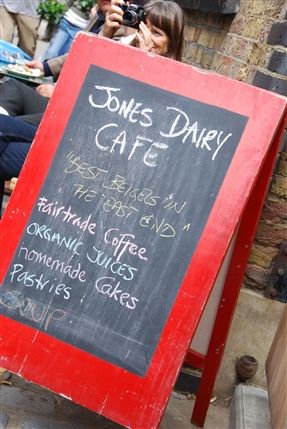 JONES DAIRY
CAFE
"BEST BEIGELS IN
THE EAST END"
Fairtrade Coffee
ORGANIC JUICES
homemade Cakes
Pastries!
SOUP!